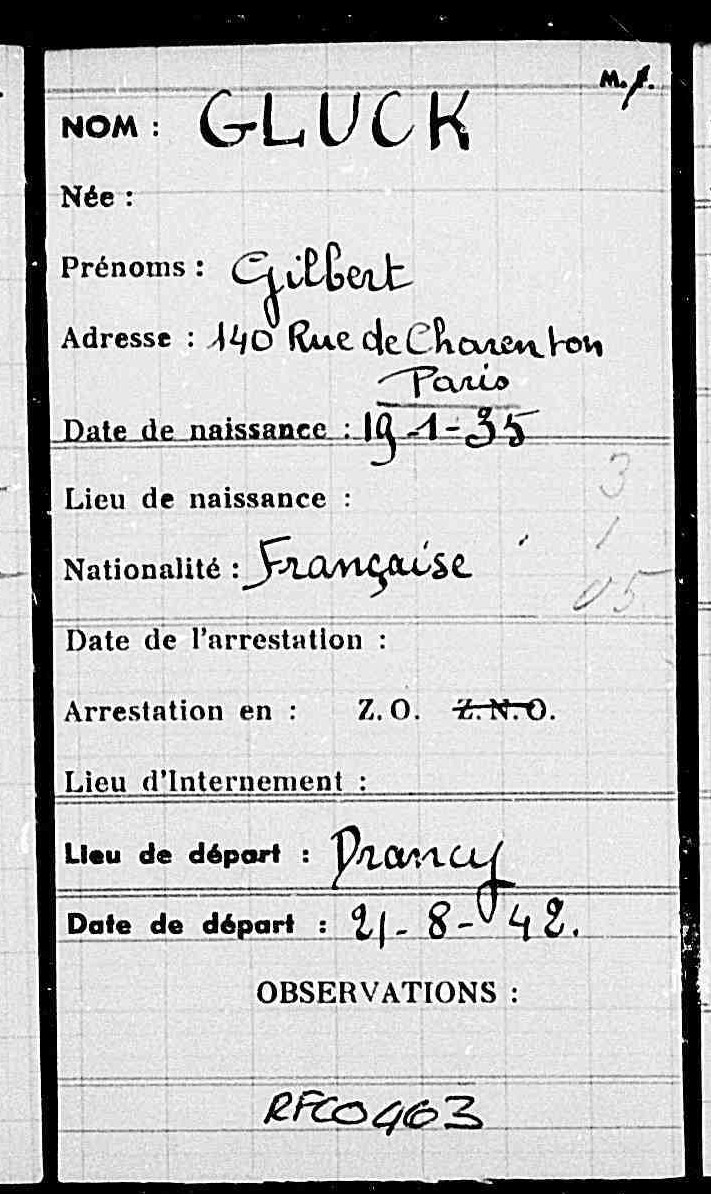 M. F.
NOM : GLUCK
Née :
Prénoms : Gilbert
Adresse : 140 Rue de Charenton
Paris
Date de naissance : 19-1-35
3
Lieu de naissance :
1
Nationalité : Française
05
Date de l'arrestation :
Arrestation en : Z.O. Z.N.O.
Lieu d'Internement :
Lieu de départ : Drancy
Date de départ : 21-8-42.
OBSERVATIONS :
RFC0463